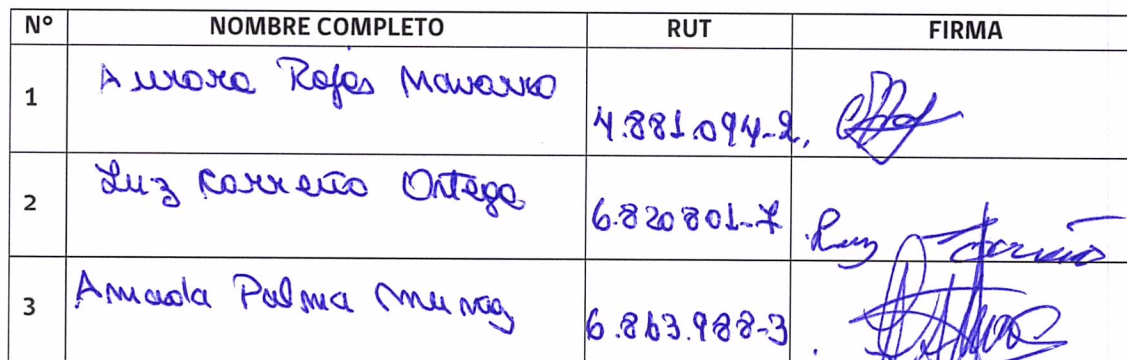 N° NOMBRE COMPLETO RUT FIRMA
1 Aurora Rojas Navarro 4.881.094-2,
2 Luz Carreño Ortega 6.820801-7 Luz Carreño
3 Amada Palma Munoz 6.863.988-3